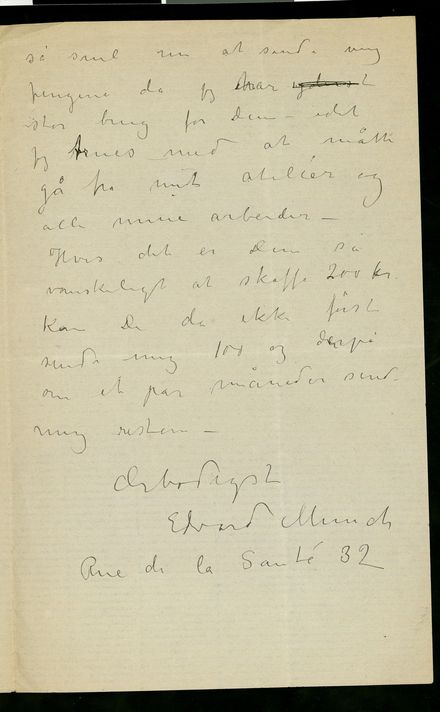 så snil nu at sende mig
pengene da jeg har
stor brug for dem – idet
jeg trues med at måtte
gå fra mit atelier og
alle mine arbeider –
Hvis det er Dem så
vanskeligt at skaffe 200 kr.
Kan De da ikke först
sende mig 100 og derpå
om et par måneder sende
mig resten –
Ærbødigst
Edvard Munch
Rue de la Santé 32